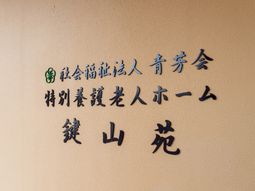 社会福祉法人 青芳会
特別養護老人ホーム
鍵山苑